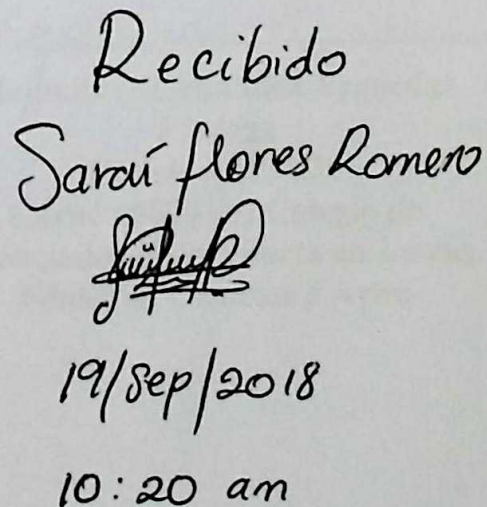 Recibido
Saraí flores Romero
19/Sep/2018
10:20 am